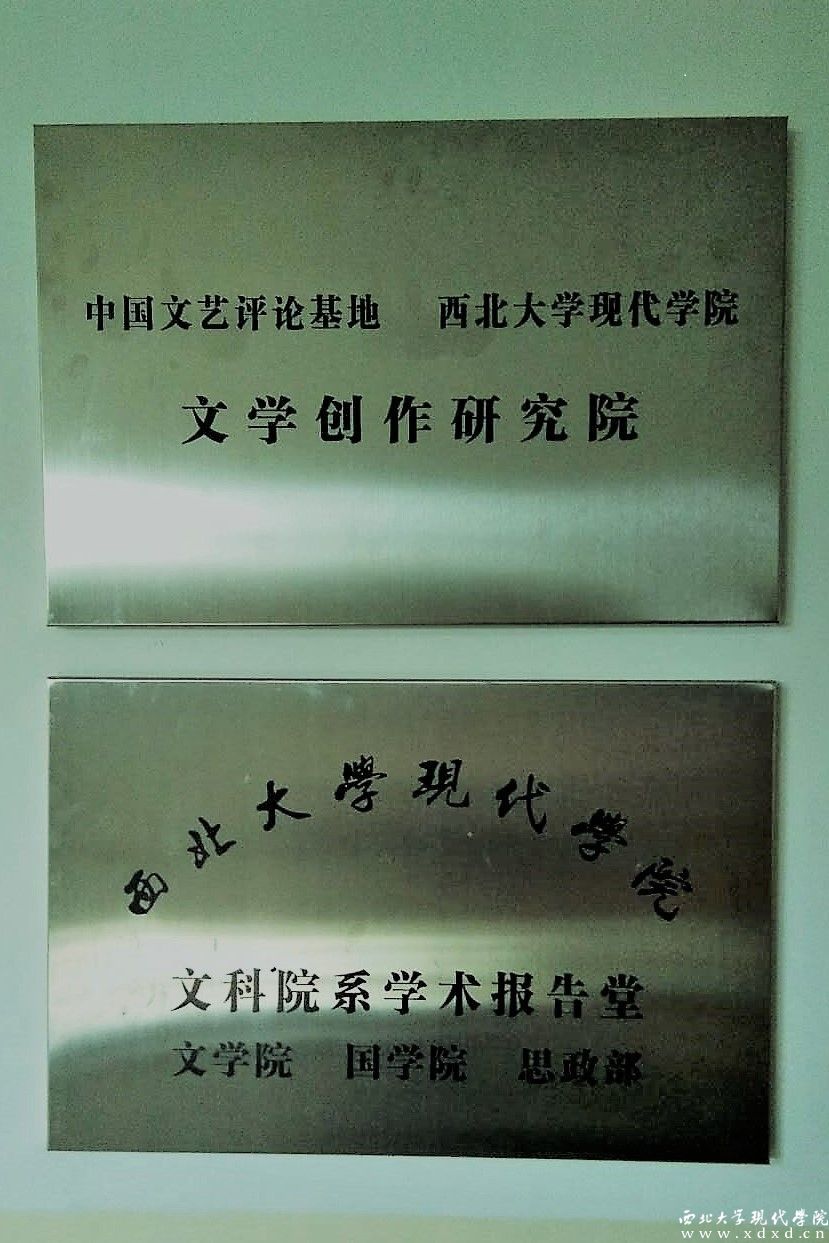 中国文艺评论基地 西北大学现代学院
文学创作研究院
西北大學現代学院
文科院系学术报告堂
文学院 国学院 思政部
西北大学现代学院
www.xdxd.cn